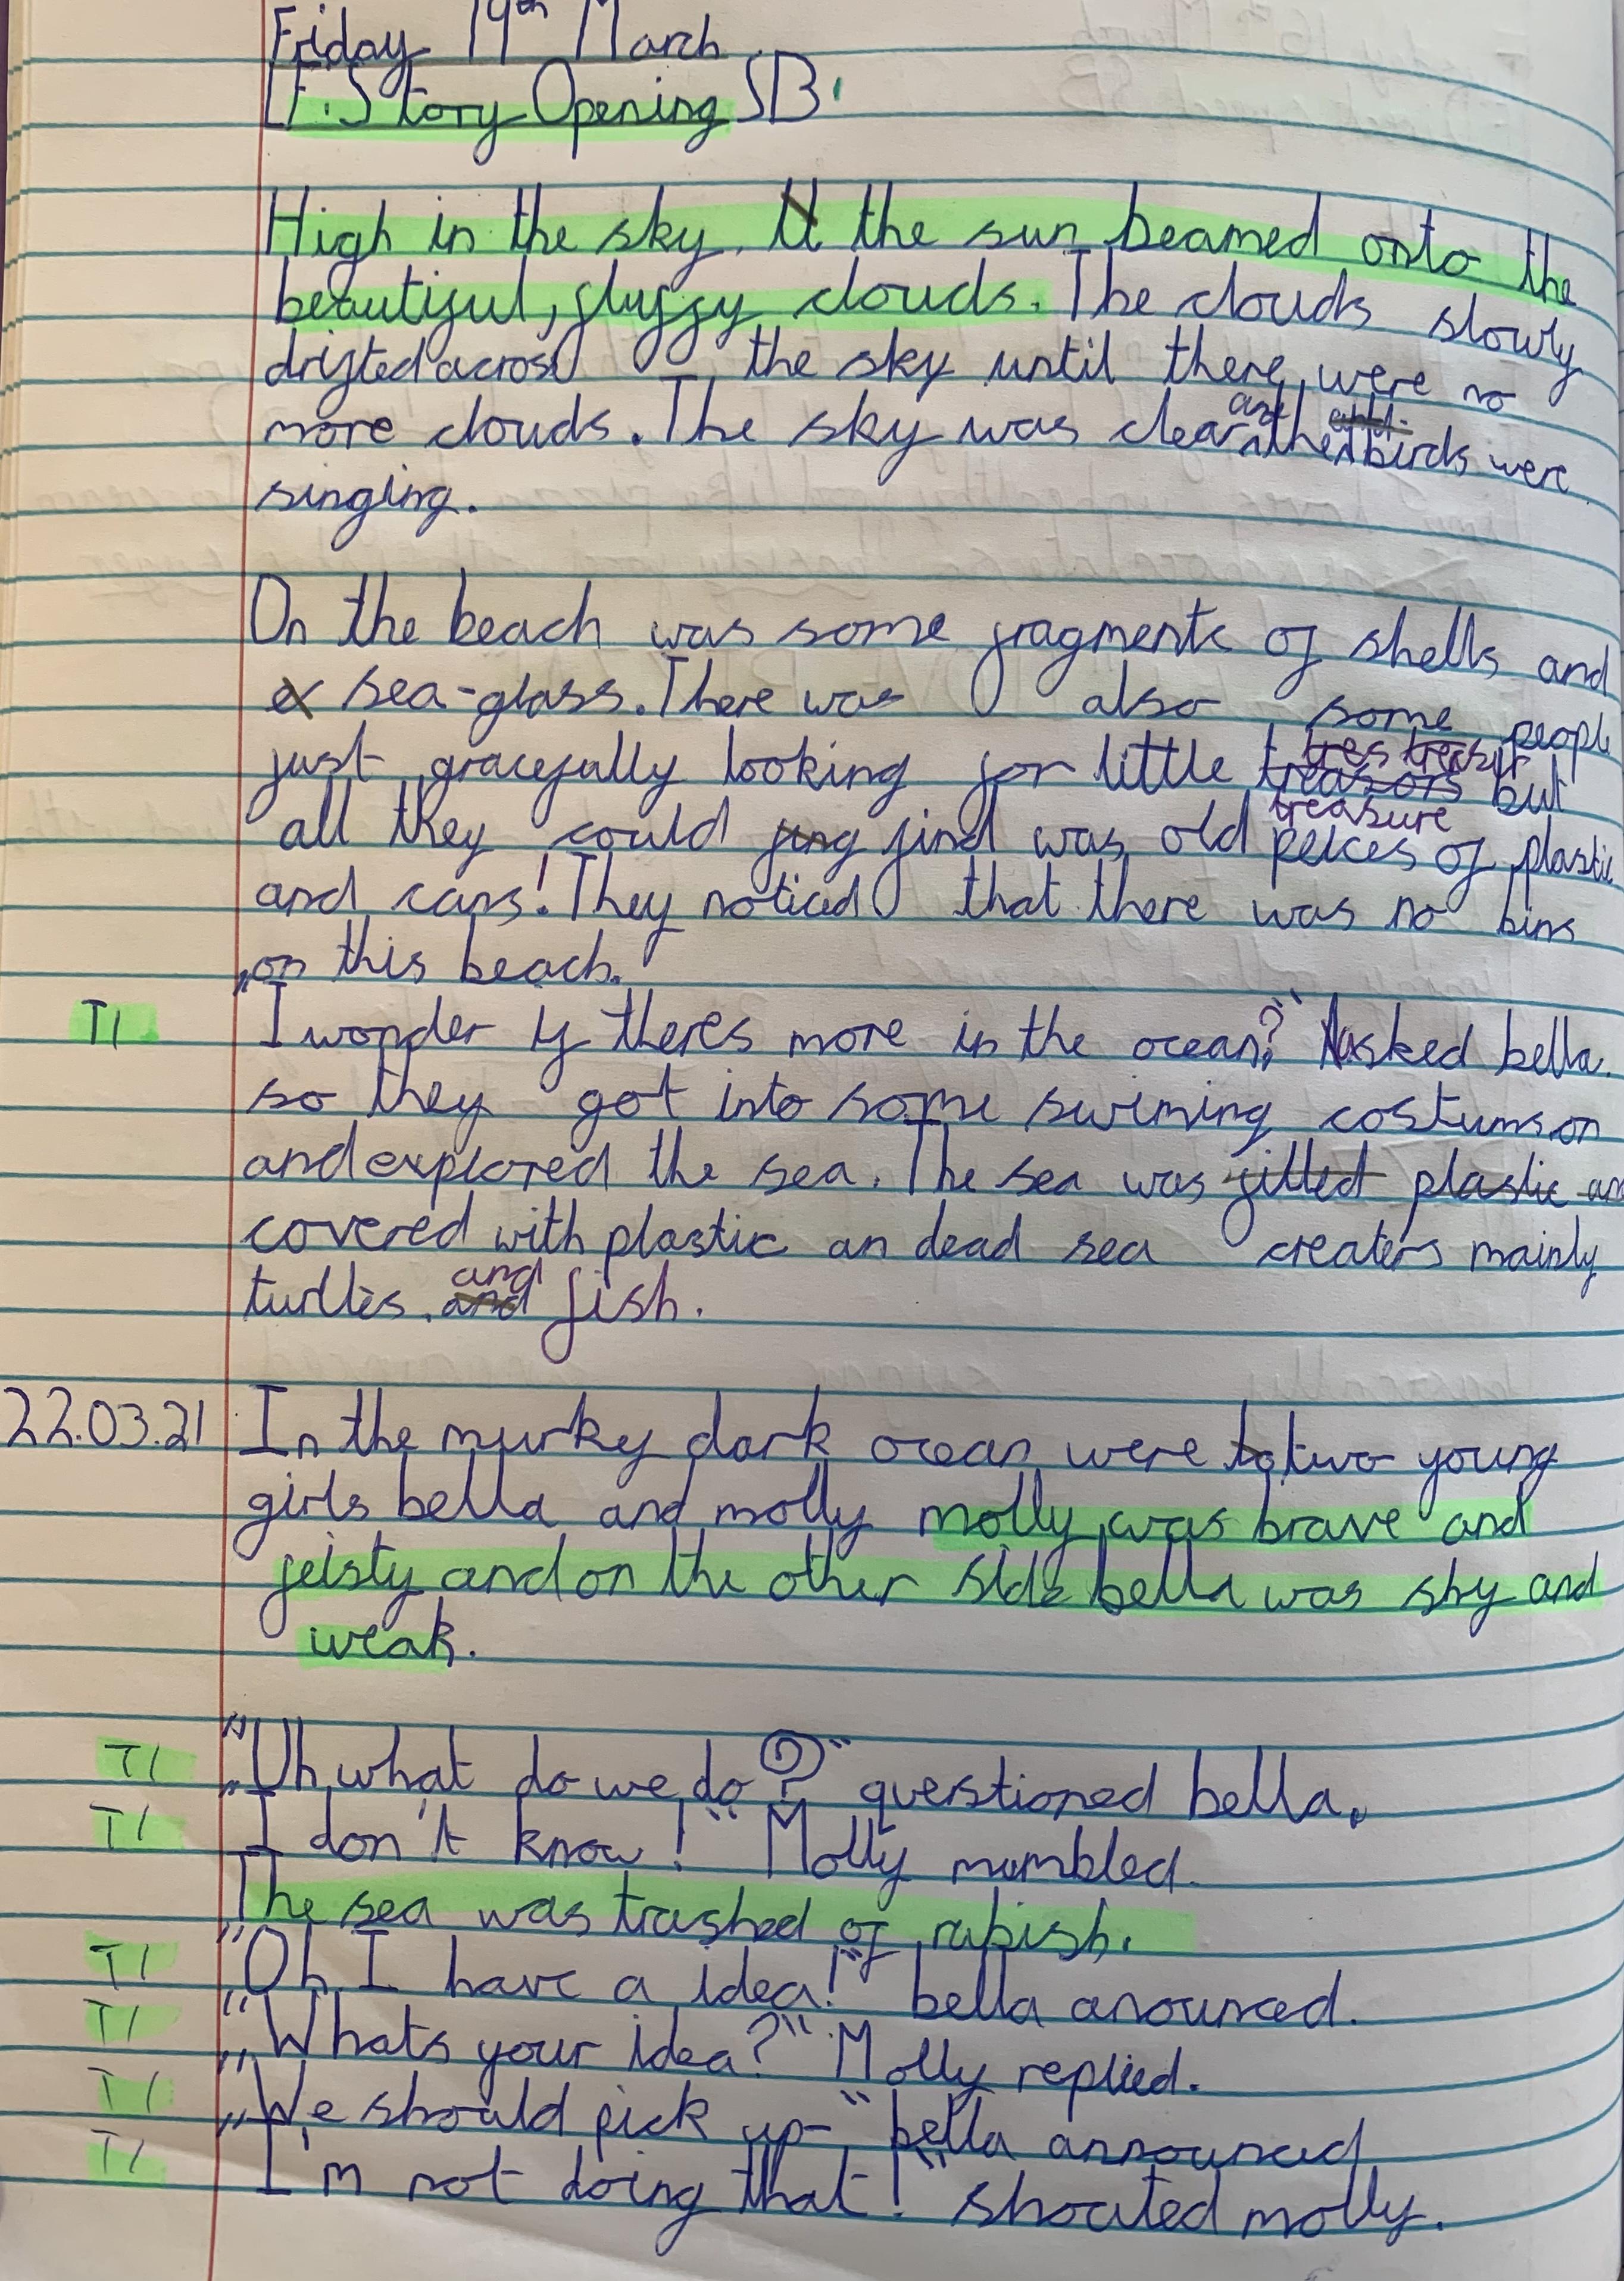 Friday 19th March
LF: Story Opening SB
High in the sky, the sun beamed onto the
beautiful, fluffy clouds. The clouds slowly
drifted across the sky until there were no
more clouds. The sky was clear and the birds were
singing.
On the beach was some fragments of shells and
sea-glass. There was also some people
just gracefully looking for little treasure but
all they could find was old peices of plastic
and cans! They noticed that there was no bins
on this beach.
TI "I wonder if theres more in the ocean?" Asked bella.
so they got into some swiming costums on
and explored the sea. The sea was filled plastic an
covered with plastic an dead sea creaters mainly
turtles and fish.
22.03.21 In the murky dark ocean were two young
girls bella and molly molly was brave and
feisty and on the other side bella was shy and
weak.
TI "Uh what do we do?" questioned bella.
TI "I don't know!" Molly mumbled.
The sea was trashed of rubish.
TI "Oh I have a idea!" bella anounced.
TI "Whats your idea?" Molly replied.
TI "We should pick up-" bella announced
TI "I'm not doing that!" shouted molly.